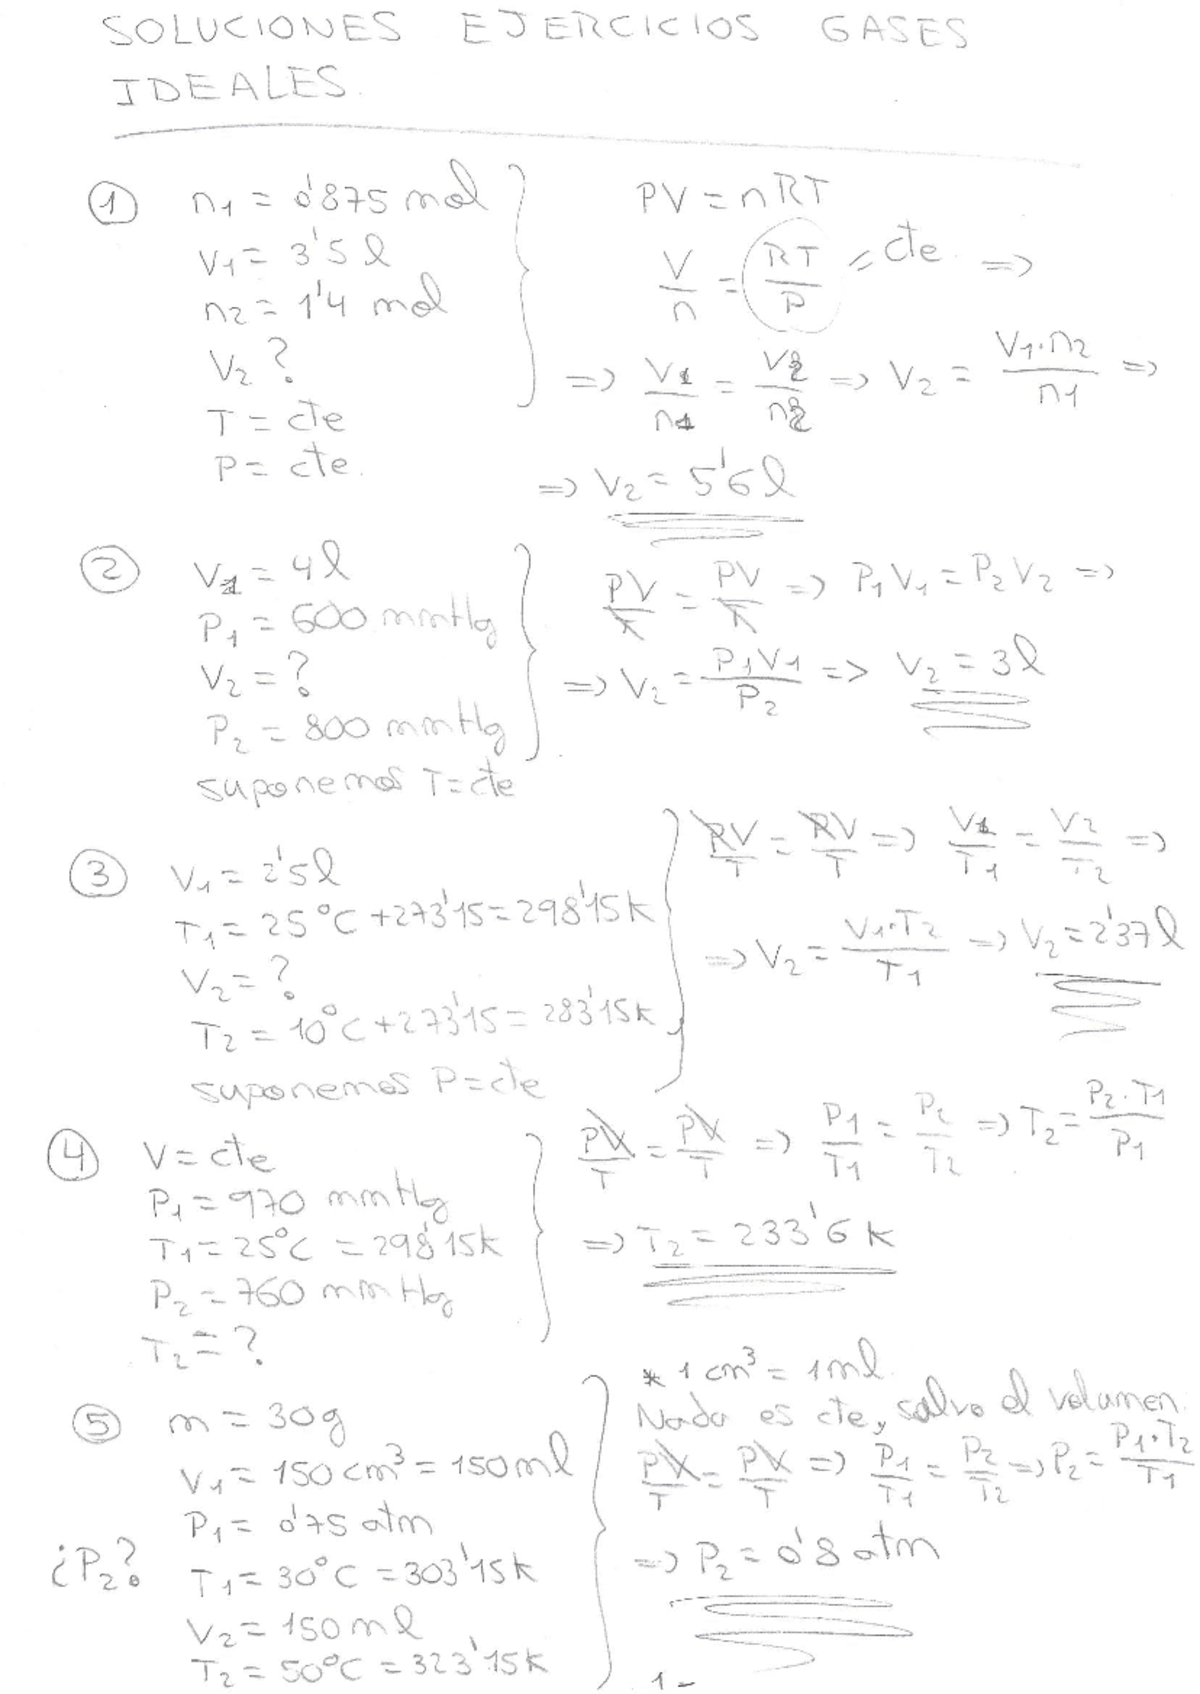 SOLUCIONES EJERCICIOS GASES
IDEALES.
① n1 = 0'875 mol
V1 = 3'5 l
n2 = 1'4 mol
V2 ?
T = cte
P = cte.
PV = nRT
V/n = RT/P = cte. =>
=> V1/n1 = V2/n2 => V2 = V1·n2/n1 =>
=> V2 = 5'6 l
② V1 = 4 l
P1 = 600 mmHg
V2 = ?
P2 = 800 mmHg
suponemos T = cte
PV/T = PV/T => P1 V1 = P2 V2 =>
=> V2 = P1V1/P2 => V2 = 3 l
③ V1 = 2'5 l
T1 = 25°C + 273'15 = 298'15 K
V2 = ?
T2 = 10°C + 273'15 = 283'15 K
suponemos P = cte
PV/T = PV/T => V1/T1 = V2/T2 =>
=> V2 = V1·T2/T1 => V2 = 2'37 l
④ V = cte
P1 = 970 mmHg
T1 = 25°C = 298'15 K
P2 = 760 mmHg
T2 = ?
PV/T = PV/T => P1/T1 = P2/T2 => T2 = P2·T1/P1
=> T2 = 233'6 K
⑤ m = 30g
V1 = 150 cm³ = 150 ml
P1 = 0'75 atm
¿P2? T1 = 30°C = 303'15 K
V2 = 150 ml
T2 = 50°C = 323'15 K
* 1 cm³ = 1 ml.
Nada es cte, salvo el volumen.
PV/T = PV/T => P1/T1 = P2/T2 => P2 = P1·T2/T1
=> P2 = 0'8 atm
1-